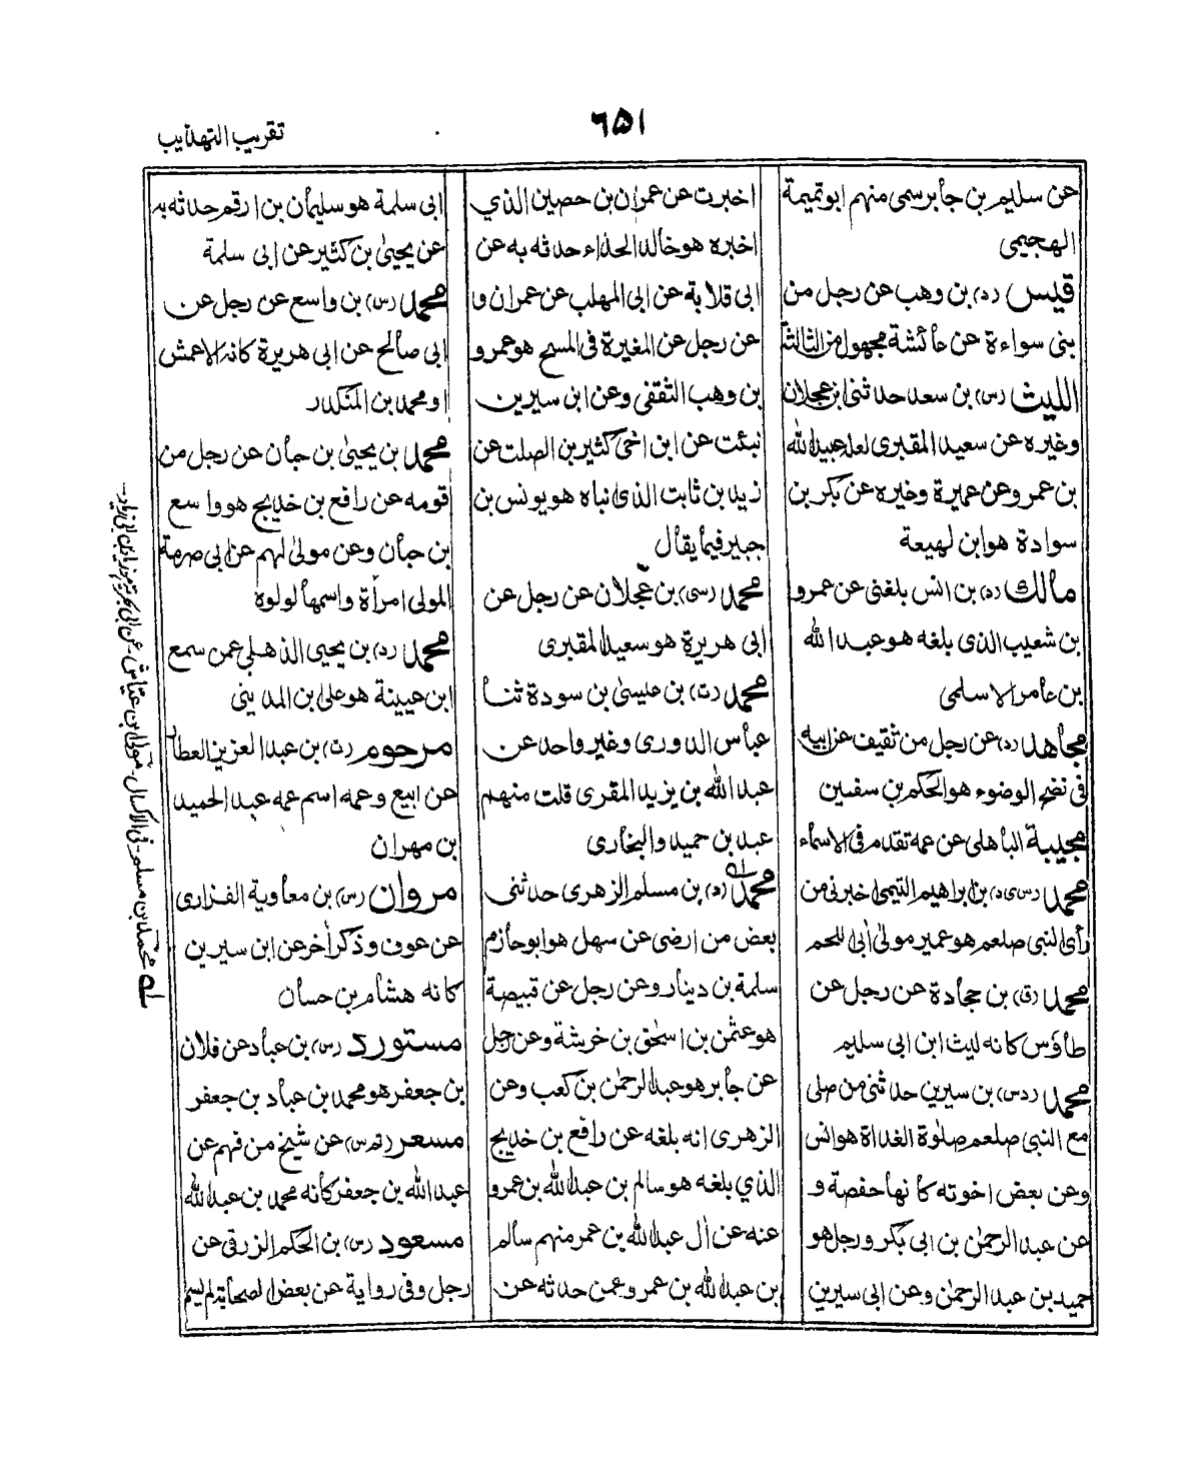 تقريب التهذيب
٦٥١
عن سليم بن جابر سمى منهم ابو تميمة
الهجيمى
قيس (د) بن وهب عن رجل من
بنى سواءة عن عائشة مجهول من الثالثة
الليث (س) بن سعد حدثنى ابن عجلان
وغيره عن سعيد المقبرى لعله عبيد الله
بن عمر وعن عميرة وغيره عن بكر بن
سوادة هو ابن لهيعة
مالك (د) بن انس بلغنى عن عمرو
بن شعيب الذى بلغه هو عبد الله
بن عامر الاسلمى
مجاهد (د) عن رجل من ثقيف عن ابيه
فى نضح الوضوء هو الحكم بن سفين
مجيبة الباهلى عن عمه تقدم فى الاسماء
محمد بن ابراهيم التيمى اخبرنى من
رأى النبى صلعم هو عمير مولى أبى اللحم
محمد (ق) بن جحادة عن رجل عن
طاؤس كانه ليث ابن ابى سليم
محمد (دس) بن سيرين حدثنى من صلى
مع النبى صلعم صلوٰة الغداة هو انس
وعن بعض اخوته كانها حفصة و
عن عبد الرحمٰن بن ابى بكر ورجل هو
حميد بن عبد الرحمٰن وعن ابى سيرين
اخبرت عن عمران بن حصين الذي
اخبره هو خالد الحذاء حدثه به عن
ابى قلابة عن ابى المهلب عن عمران و
عن رجل عن المغيرة فى المسح هو عمرو
بن وهب الثقفى وعن ابن سيرين
نبئت عن ابن اخى كثير بن الصلت عن
زيد بن ثابت الذى نباه هو يونس بن
جبير فيما يقال
محمد (سى) بن عجلان عن رجل عن
ابى هريرة هو سعيد المقبرى
محمد (ت) بن عيسىٰ بن سودة ثنا
عباس الدورى وغير واحد عن
عبد الله بن يزيد المقرى قلت منهم
عبد بن حميد والبخارى
محمد (د) بن مسلم الزهرى حدثنى
بعض من ارضى عن سهل هو ابو حازم
سلمة بن دينار وعن رجل عن قبيصة
هو عثمٰن بن اسحٰق بن خرشة وعن رجل
عن جابر هو عبد الرحمٰن بن كعب وعن
الزهرى انه بلغه عن رافع بن خديج
الذي بلغه هو سالم بن عبد الله بن عمر و
عنه عن اٰل عبد الله بن عمر منهم سالم
بن عبد الله بن عمر وعمن حدثه عن
ابى سلمة هو سليمان بن ارقم حدثه به
عن يحيىٰ بن كثير عن ابى سلمة
محمد (س) بن واسع عن رجل عن
ابى صالح عن ابى هريرة كانه الاعمش
او محمد بن المنكدر
محمد بن يحيىٰ بن حبان عن رجل من
قومه عن رافع بن خديج هو واسع
بن حبان وعن مولىٰ لهم عن ابى صرمة
المولى امرأة واسمها لولوة
محمد (د) بن يحيى الذهلي عمن سمع
ابن عيينة هو على بن المديني
مرحوم (ت) بن عبد العزيز العطار
عن ابيه وعمه اسم عمه عبد الحميد
بن مهران
مروان (س) بن معاوية الفزارى
عن عوف وذكر اٰخر عن ابن سيرين
كانه هشام بن حسان
مستورد (س) بن عباد عن فلان
بن جعفر هو محمد بن عباد بن جعفر
مسعر عن شيخ من فهم عن
عبد الله بن جعفر كأنه محمد بن عبد الله
مسعود (س) بن الحكم الزرقى عن
رجل وفى رواية عن بعض الصحابة لم يسم
له محمد بن مسلم فى الاكمال مولى ابن عياش عن ابى بحرية